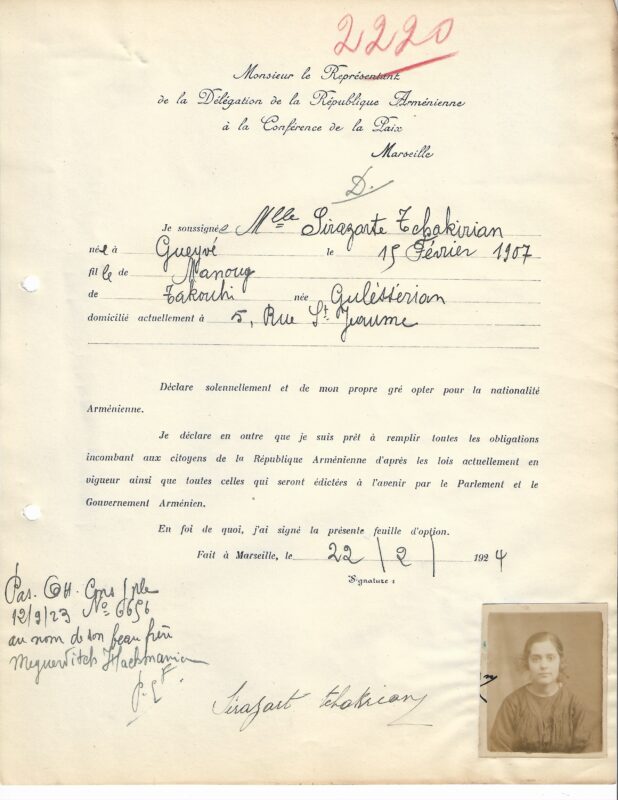 2220
Monsieur le Représentant
de la Délégation de la République Arménienne
à la Conférence de la Paix
Marseille
D.
Je soussignée Mlle Sirazarte Tchakirian
née à Gueyvé le 15 Février 1907
fille de Manoug
de Takouhi née Guléssérian
domicilié actuellement à 5, Rue St Jeaume
Déclare solennellement et de mon propre gré opter pour la nationalité
Arménienne.
Je déclare en outre que je suis prêt à remplir toutes les obligations
incombant aux citoyens de la République Arménienne d'après les lois actuellement en
vigueur ainsi que toutes celles qui seront édictées à l'avenir par le Parlement et le
Gouvernement Arménien.
En foi de quoi, j'ai signé la présente feuille d'option.
Fait à Marseille, le 22 / 2 / 1924
Signature :
Pas. Cons/ple
12/9/23 No 6656
au nom de son beau frère
Meguerditch Hachmanian
Sirazart Tchakirian